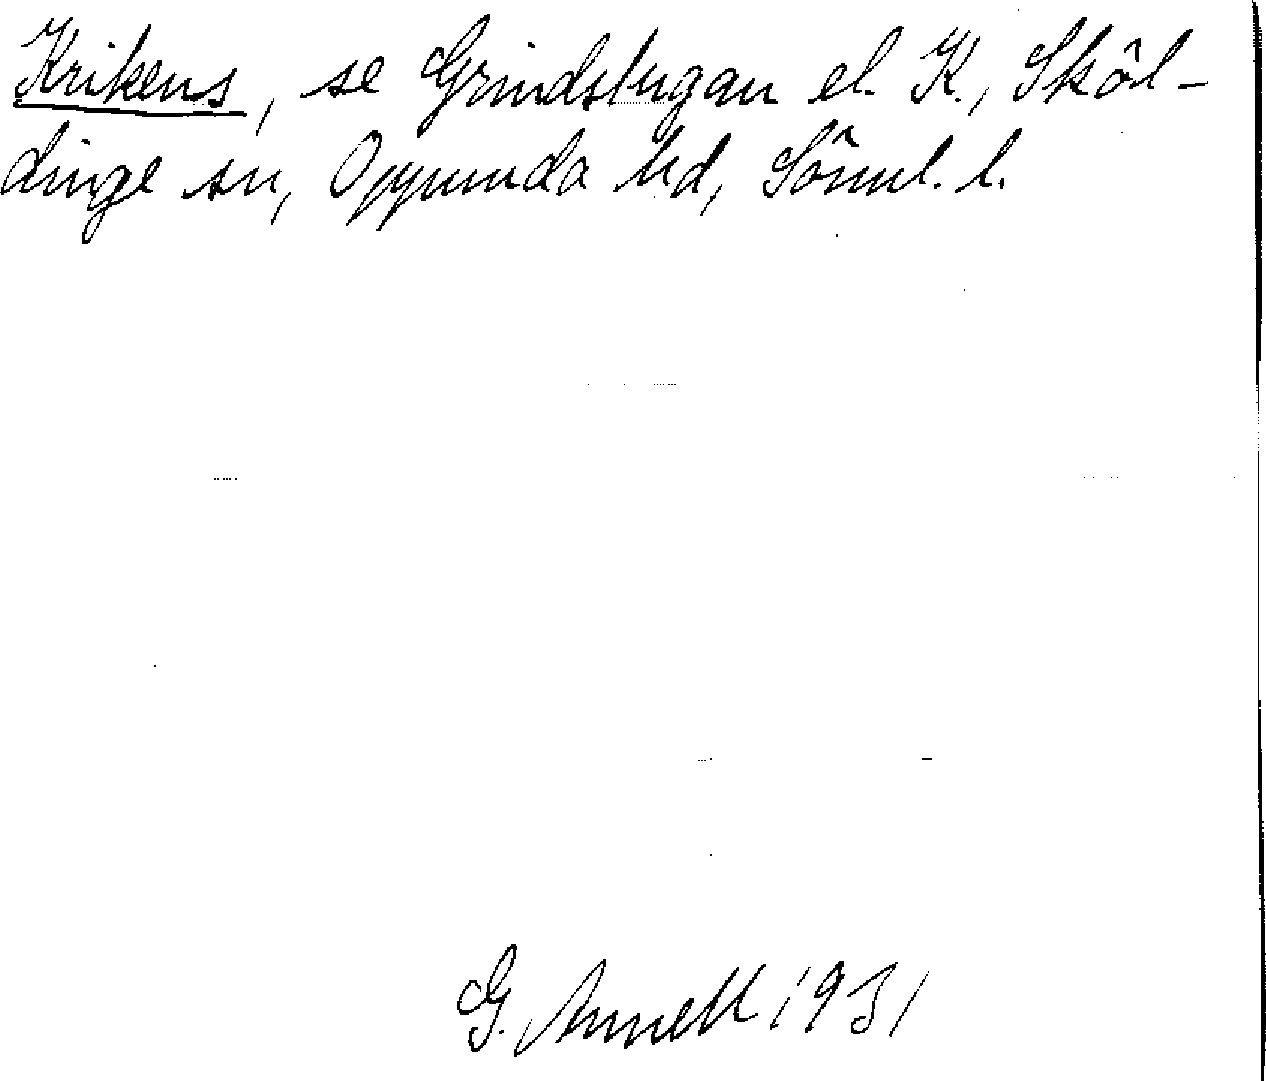 Krikens, se Grindstugan el. K., Sköl-
dinge sn, Oppunda hd, Sörml. l.
G. Annell 1931